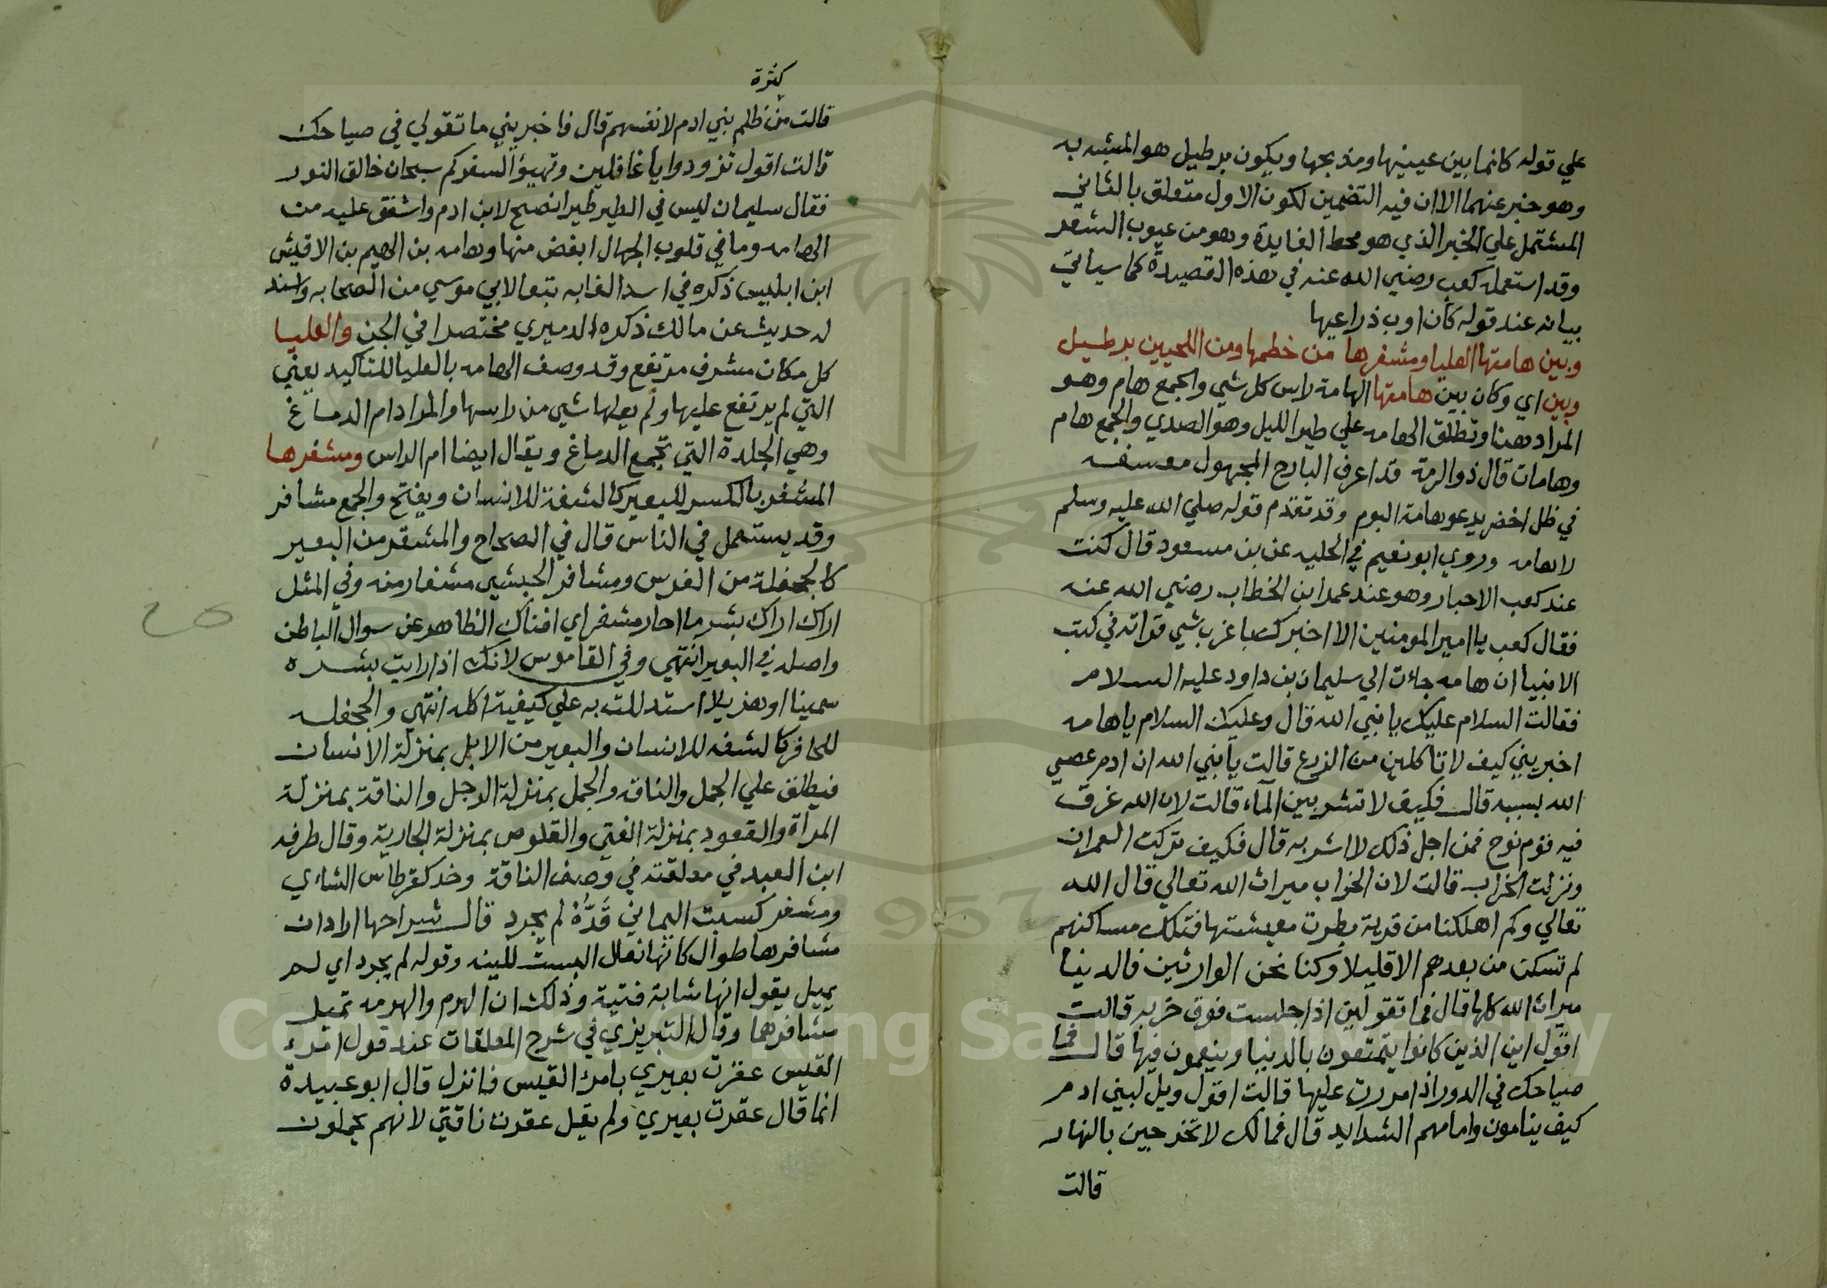 علي قوله كانما بين عينيها ومذبحها ويكون برطيل هو المشبه به
وهو خبر عنهما الا ان فيه التضمين لكون الاول متعلق بالثاني
المشتمل علي الخبر الذي هو محط الفايدة وهو من عيوب الشعر
وقد استعمله كعب رضي الله عنه في هذه القصيدة كما سياتي
بيانه عند قوله كان اوب ذراعيها
وبين هامتها العليا ومشفرها من خطمها ومن اللحيين برطيل
وبين اي وكان بين هامتها الهامة راس كل شي والجمع هام وهو
المراد هنا وتطلق الهامه علي طير الليل وهو الصدي والجمع هام
وهامات قال ذو الرمة قد اعرف البارح المجهول معسفه
في ظل اخضر يدعو هامة البوم وقد تقدم قوله صلي الله عليه وسلم
لا هامه وروي ابو نعيم في الحليه عن بن مسعود قال كنت
عند كعب الاحبار وهو عند عمر ابن الخطاب رضي الله عنه
فقال كعب يا امير المومنين الا اخبرك باغرب شي قراته في كتب
الانبيا ان هامه جاءت الي سليمان بن داود عليه السلام
فقالت السلام عليك يا نبي الله قال وعليك السلام يا هامه
اخبريني كيف لا تاكلين من الزرع قالت يا نبي الله ان ادم عصي
الله بسببه قال فكيف لا تشربين الماء قالت لان الله غرق
فيه قوم نوح فمن اجل ذلك لا اشربه قال فكيف تركت العمران
ونزلت الخراب قالت لان الخراب ميراث الله تعالي قال الله
تعالي وكم اهلكنا من قرية بطرت معيشتها فتلك مساكنهم
لم تسكن من بعدهم الا قليلا وكنا نحن الوارثين فالدنيا
ميراث الله كلها قال فما تقولين اذا جلست فوق خربه قالت
اقول اين الذين كانوا يتمتعون بالدنيا وينعمون فيها قال فما
صياحك في الدور اذا مررت عليها قالت اقول ويل لبني ادم
كيف ينامون وامامهم الشدايد قال فمالك لا تخرجين بالنهار
قالت
كثرة
قالت من ظلم بني ادم لانفسهم قال فاخبريني ما تقولي في صياحك
قالت اقول تزودوا يا غافلين وتهيؤا لسفركم سبحان خالق النور
فقال سليمان ليس في الطير طير انصح لابن ادم واشفق عليه من
الهامه وما في قلوب الجهال ابغض منها وهامه بن الهيم بن الاقيش
ابن ابليس ذكره في اسد الغابه تبعا لابي موسي من الصحابه واسند
له حديث عن مالك ذكره الدميري مختصرا في الجن والعليا
كل مكان مشرف مرتفع وقد وصف الهامه بالعليا للتاكيد يعني
التي لم يرتفع عليها ولم يعلها شي من راسها والمراد ام الدماغ
وهي الجلدة التي تجمع الدماغ ويقال ايضا ام الراس ومشفرها
المشفر بالكسر للبعير كالشفة للانسان ويفتح والجمع مشافر
وقد يستعمل في الناس قال في الصحاح والمشفر من البعير
كالجحفلة من الفرس ومشافر الحبشي مشفار منه وفي المثل
اراك اراك بشر ما احار مشفر اي اغناك الظاهر عن سوال الباطن
واصله في البعير انتهي وفي القاموس لانك اذا رايت بشره
سمينا او هزيلا استدللت به علي كيفية اكله انتهي والجحفله
للحافر كالشفه للانسان والبعير من الابل بمنزلة الانسان
فيطلق علي الجمل والناقه والجمل بمنزلة الرجل والناقة بمنزلة
المراة والقعود بمنزلة الفتي والقلوص بمنزلة الجارية وقال طرفه
ابن العبد في معلقته في وصف الناقة وخد كقرطاس الشاءي
ومشفر كسبت اليماني قده لم يجرد قال شراحها اراد ان
مشافرها طوال كانها نعال السبت للينه وقوله لم يجرد اي لم
يميل يقول انها شابة فتية وذلك ان الهرم والهرمه تميل
مشافرهما وقال التبريزي في شرح المعلقات عند قول امرء
القيس عقرت بعيري يا مرا القيس فانزل قال ابو عبيدة
انما قال عقرت بعيري ولم يقل عقرت ناقتي لانهم يحملون
Copyright © King Saud University
1957